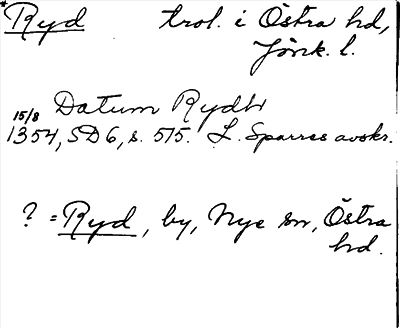 *Ryd trol. i Östra hd,
Jönk. l.
15/8 Datum Rydh
1354, SD 6, s. 515. L. Sparres avskr.
? = Ryd, by, Nye sn, Östra
hd.